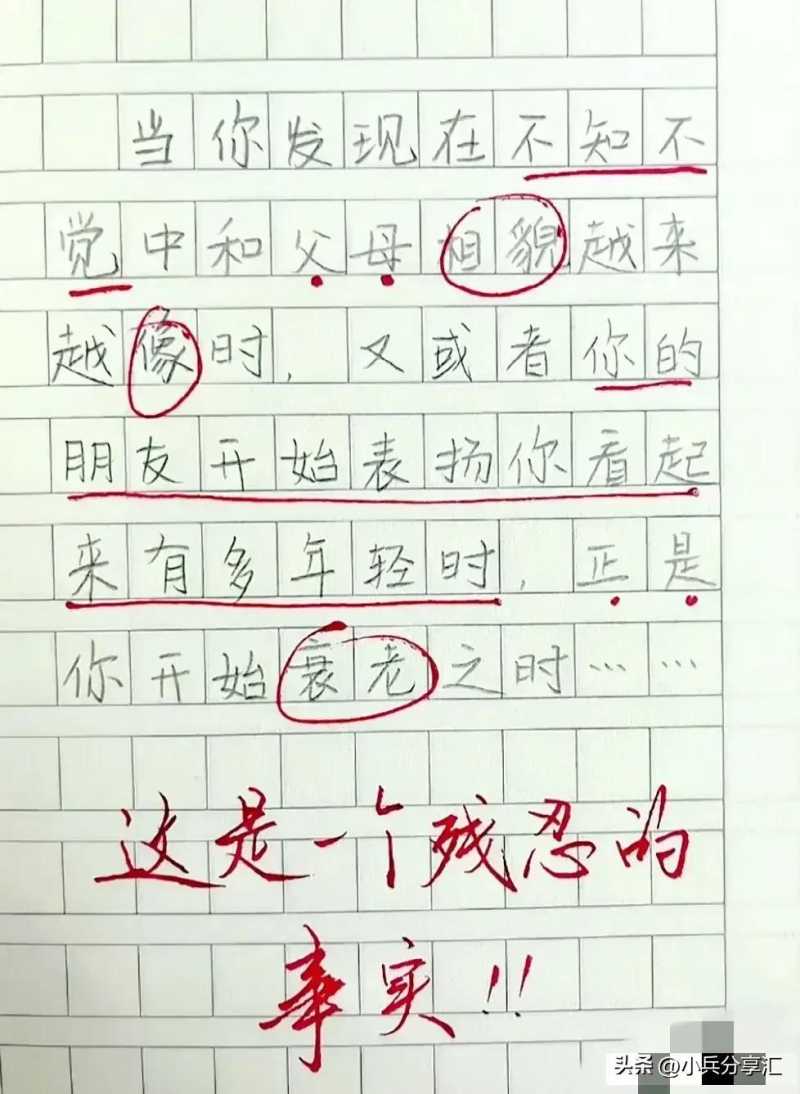 当你发现在不知不
觉中和父母相貌越来
越像时，又或者你的
朋友开始表扬你看起
来有多年轻时，正是
你开始衰老之时……
这是一个残忍的
事实!!
头条 @小兵分享汇